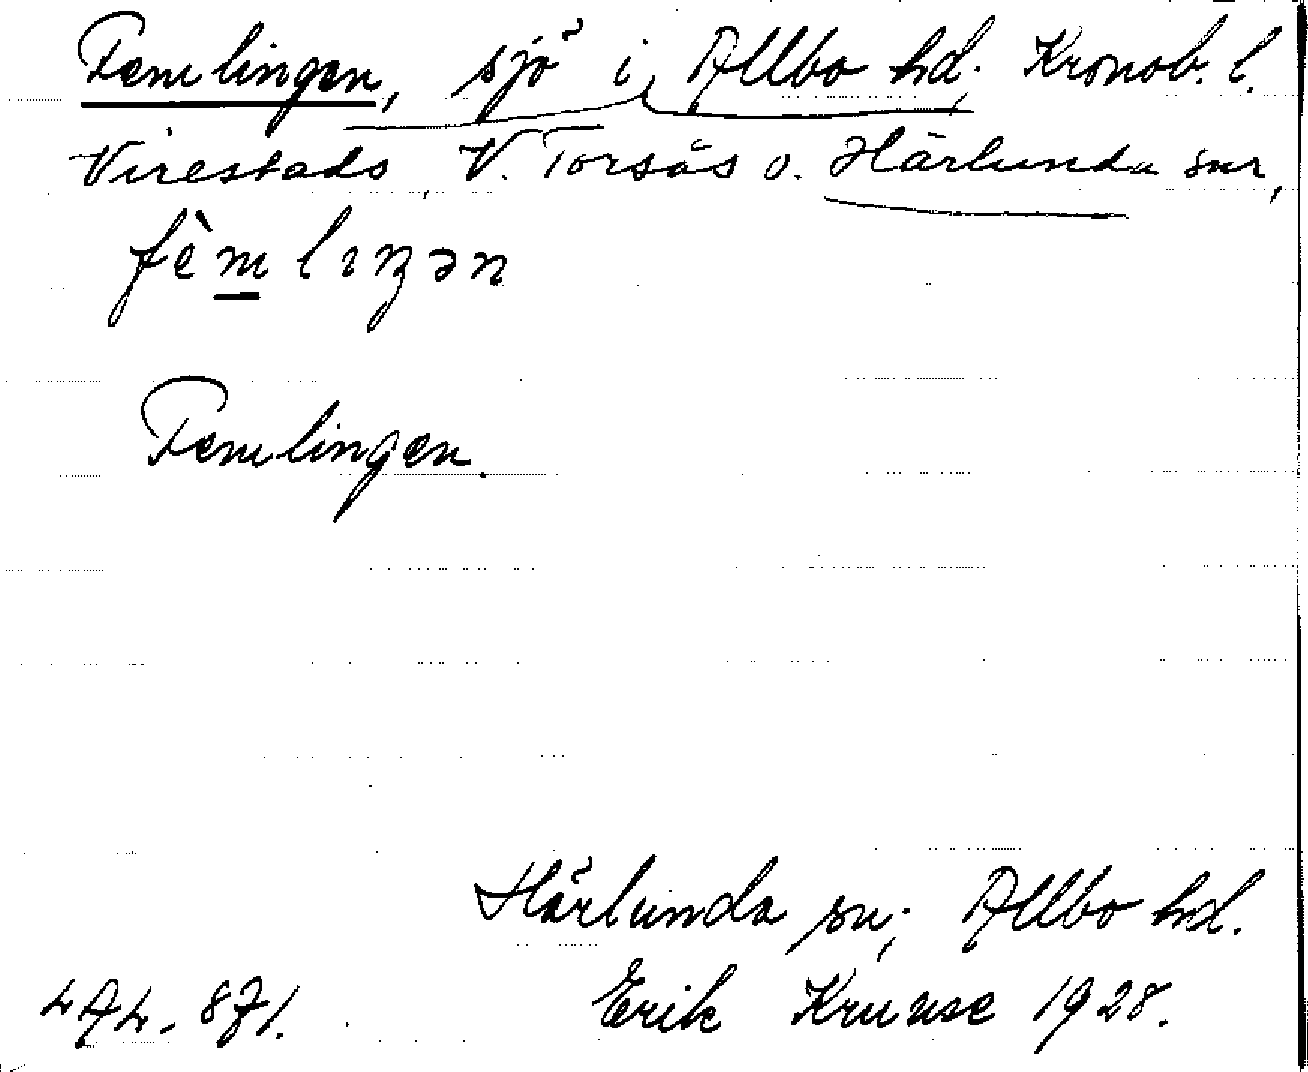 Femlingen, sjö i Allbo hd. Kronob. l.
Virestads, V. Torsås o. Härlunda snr,
fè̱mlıŋən
Femlingen.
Härlunda sn; Allbo hd.
Erik Kruuse 1928.